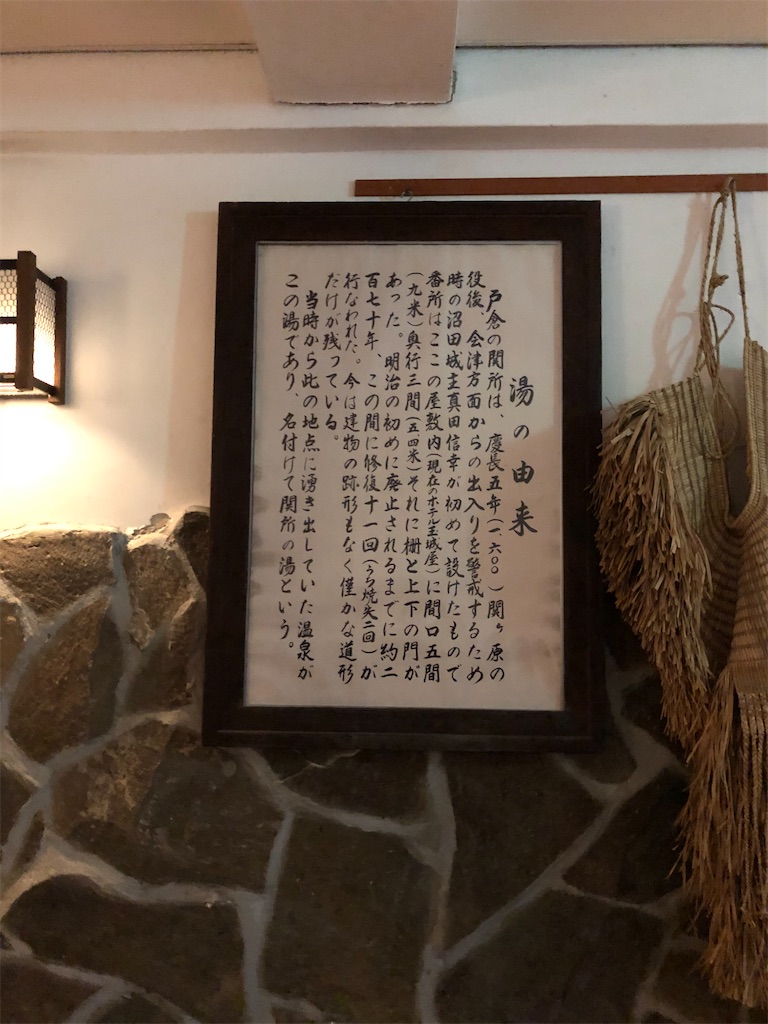 湯の由来
戸倉の関所は、慶長五年(一、六〇〇)関ヶ原の
役後、会津方面からの出入りを警戒するため
時の沼田城主真田信幸が初めて設けたもので
番所はここの屋敷内(現在のホテル玉城屋)に間口五間
(九米)奥行三間(五、四米)それに柵と上下の門が
あった。明治の初めに廃止されるまでに約二
百七十年、この間に修復十一回(うち焼失二回)が
行なわれた。今は建物の跡形もなく僅かな道形
だけが残っている。
当時から此の地点に湧き出していた温泉が
この湯であり、名付けて関所の湯という。